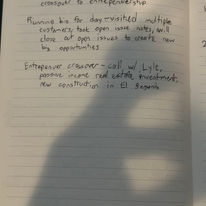 crossover to entrepreneurship
Running biz for day - visited multiple
customers, took open issue notes, will
close out open issues to create new
biz opportunities
Entrepenuer crossover - call w/ Lyle,
passive income real estate investments,
new construction in El Segundo